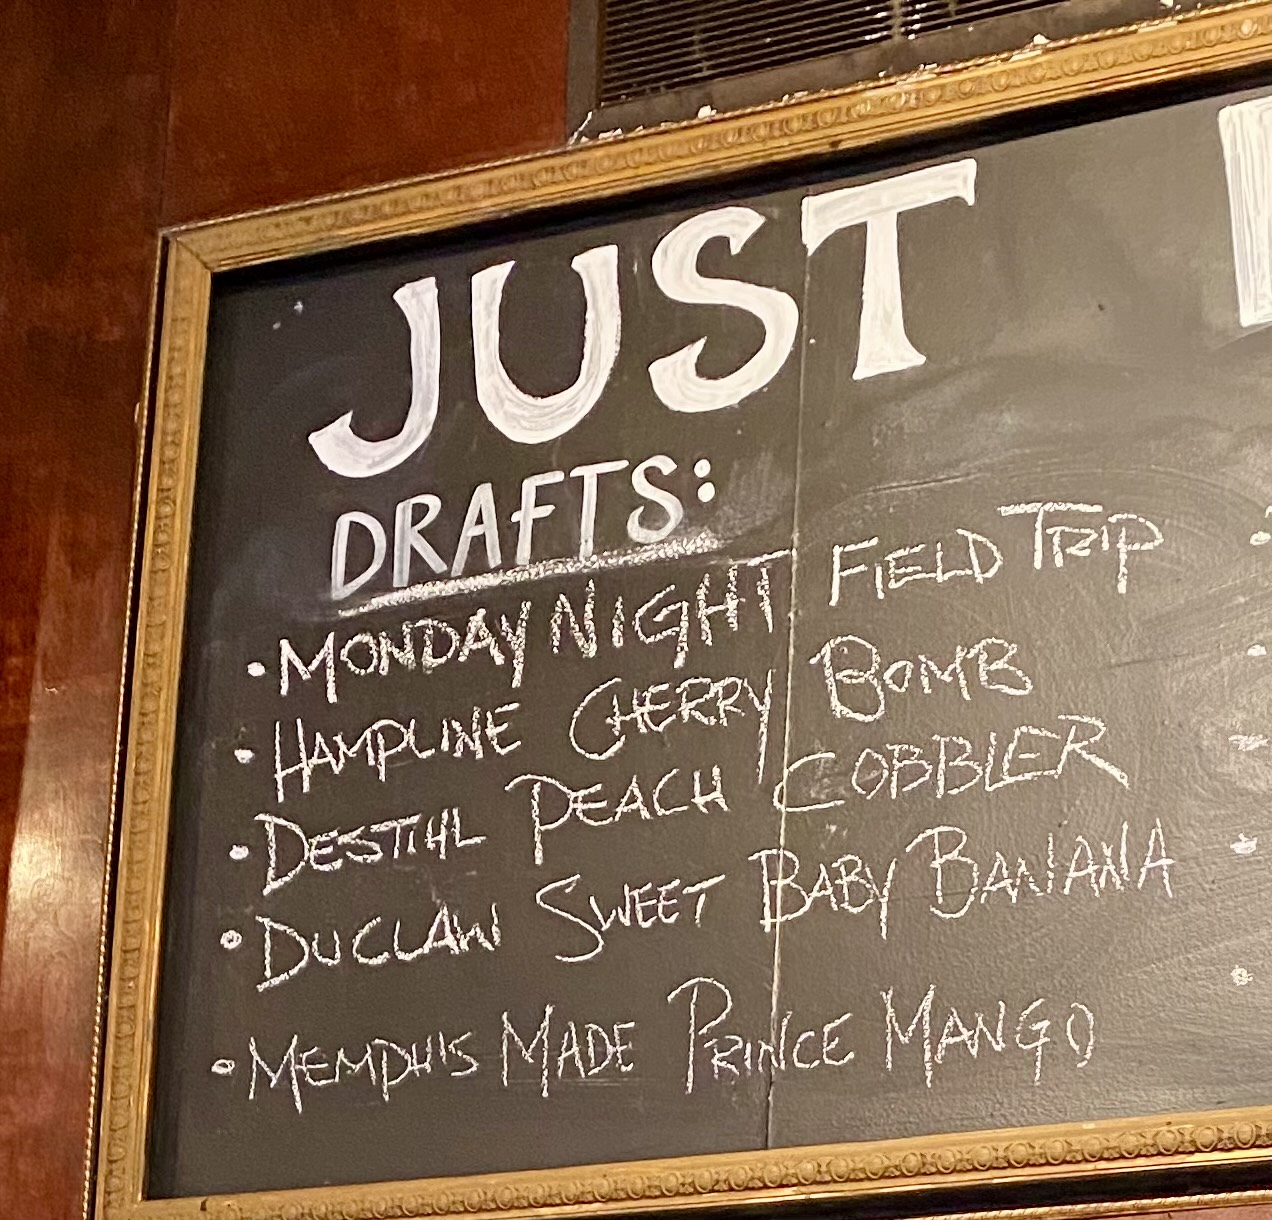 JUST
DRAFTS:
• MONDAY NIGHT FIELD TRIP
• HAMPLINE CHERRY BOMB
• DESTIHL PEACH COBBLER
• DUCLAW SWEET BABY BANANA
• MEMPHIS MADE PRINCE MANGO